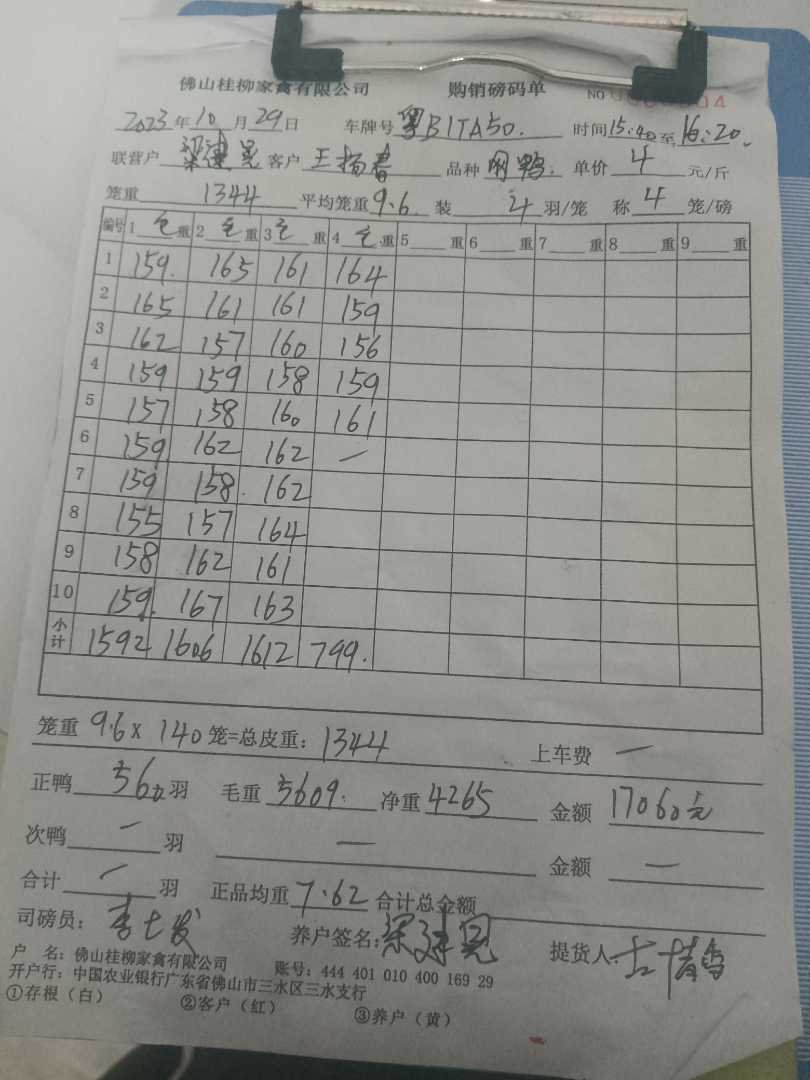 佛山桂柳家禽有限公司 购销磅码单 NO
2023年10月29日 车牌号 粤B1TA50. 时间15:40至16:20.
联营户 梁建晃 客户 王扬春 品种 鸭. 单价 4 元/斤
笼重 1344 平均笼重9.6 装 4 羽/笼 称 4 笼/磅
编号 1 毛重 2 毛重 3 毛重 4 毛重 5 重 6 重 7 重 8 重 9 重
1 159. 165 161 164
2 165 161 161 159
3 162 157 160 156
4 159 159 158 159
5 157 158 160 161
6 159 162 162 —
7 159 158. 162
8 155 157 164
9 158 162 161
10 159. 167 163
小计 1592 1606 1612 799.
笼重 9.6 x 140 笼=总皮重: 1344 上车费 —
正鸭 560 羽 毛重 5609. 净重 4265 金额 17060元
次鸭 — 羽 — 金额 —
合计 — 羽 正品均重 7.62 合计总金额
司磅员: 李七发 养户签名: 梁建晃 提货人
户 名: 佛山桂柳家禽有限公司 账号: 444 401 010 400 169 29
开户行: 中国农业银行广东省佛山市三水区三水支行
①存根（白） ②客户（红） ③养户（黄）